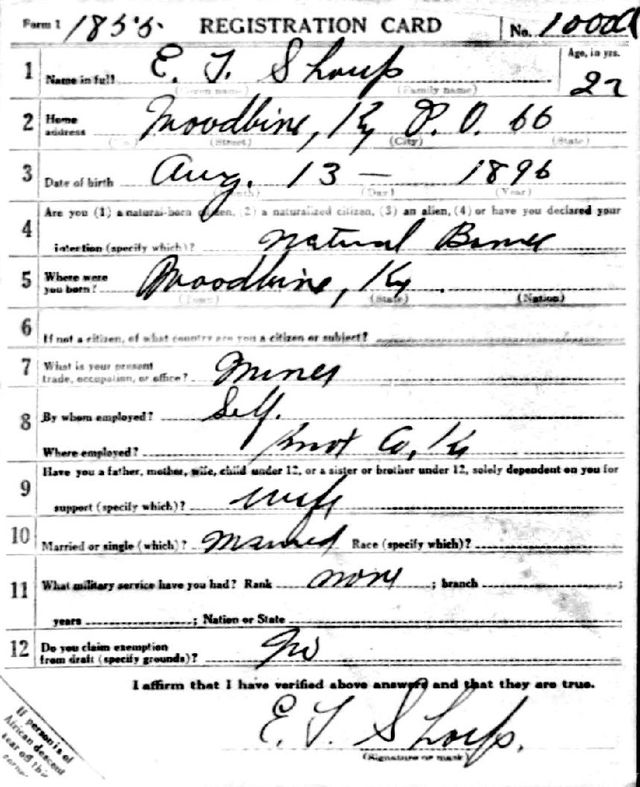 Form 1 1855 REGISTRATION CARD No. 100
1 Name in full E. T. Sharp Age, in yrs.
(Given name) (Family name) 22
2 Home address Woodbine, Ky P. O. 66
(No.) (Street) (City) (State)
3 Date of birth Aug. 13 — 1896
(Month) (Day) (Year)
4 Are you (1) a natural-born citizen, (2) a naturalized citizen, (3) an alien, (4) or have you declared your
intention (specify which)? natural
5 Where were you born? Woodbine, Ky
(Town) (State) (Nation)
6 If not a citizen, of what country are you a citizen or subject?
7 What is your present trade, occupation, or office? Miner
8 By whom employed? Self.
Where employed? Knox Co, Ky
9 Have you a father, mother, wife, child under 12, or a sister or brother under 12, solely dependent on you for
support (specify which)? wife
10 Married or single (which)? Married Race (specify which)?
11 What military service have you had? Rank none ; branch ;
years ; Nation or State
12 Do you claim exemption from draft (specify grounds)? No
I affirm that I have verified above answers and that they are true.
E. T. Sharp.
(Signature or mark)
If person is of
African descent
tear off this
corner